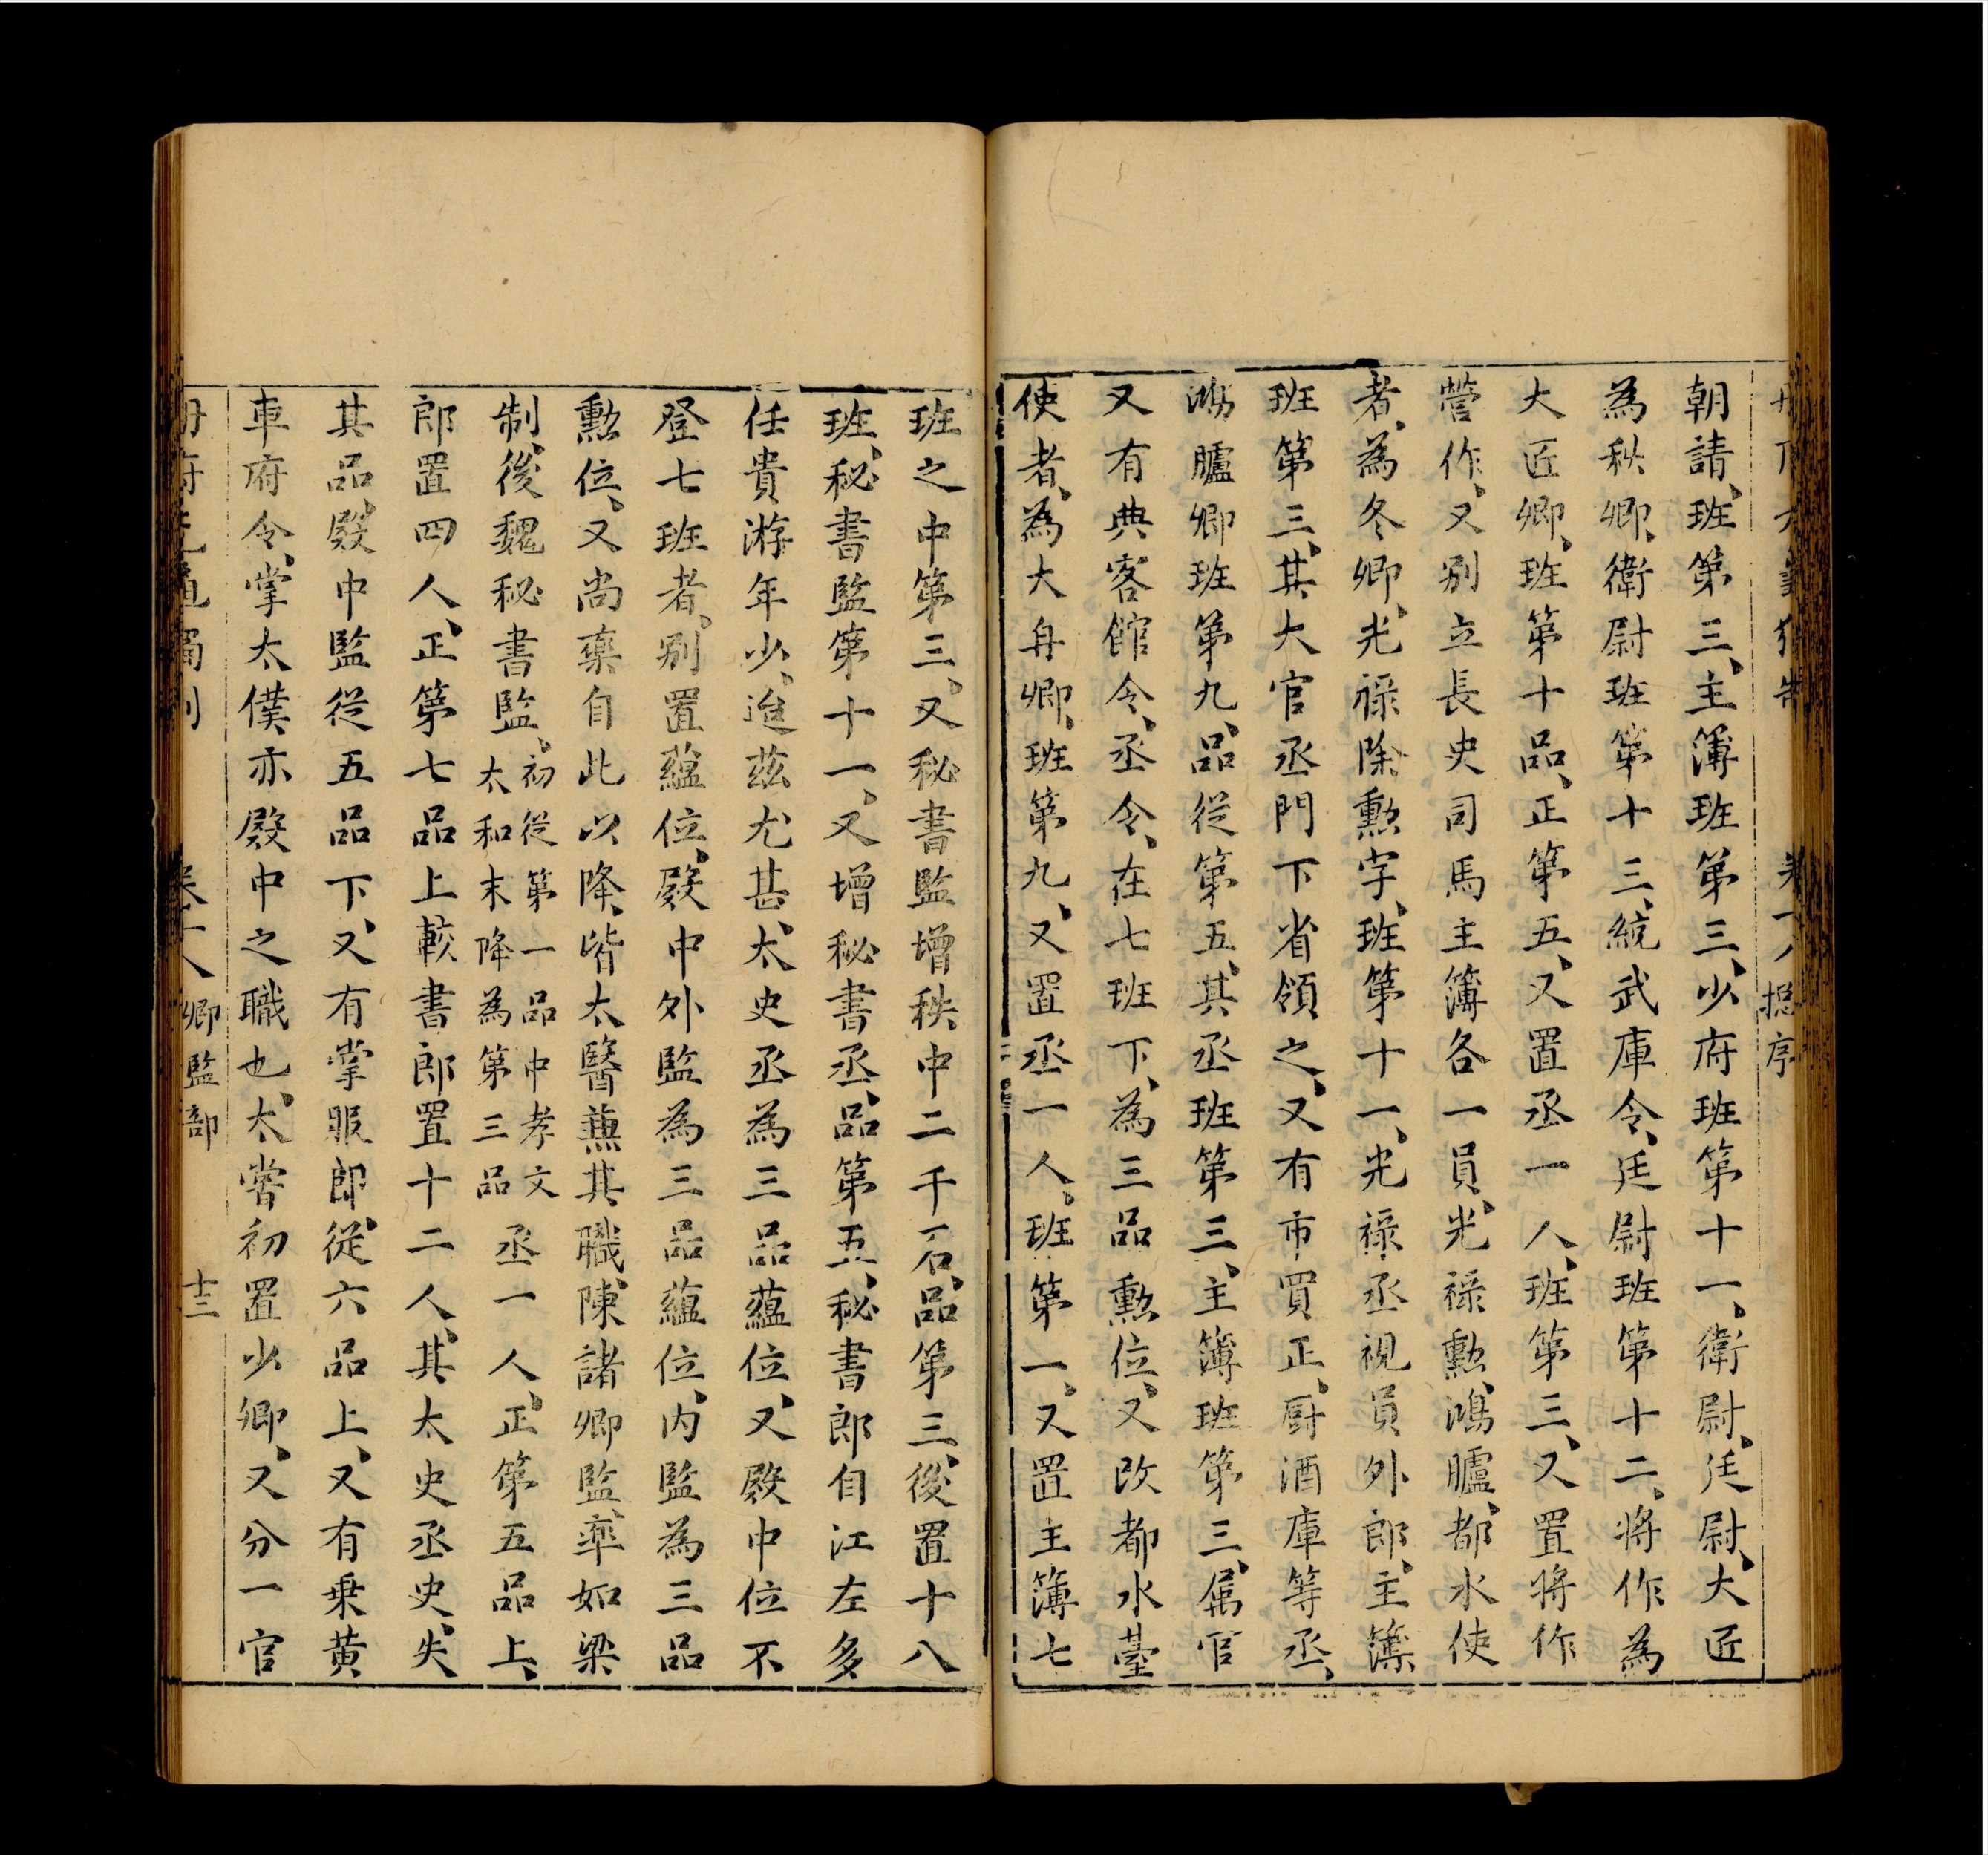 朝請、班第三、主簿班第三、少府班第十一、衛尉、廷尉、大匠
為秋卿、衛尉班第十三、統武庫令、廷尉班第十二、將作為
大匠卿、班第十品、正第五、又置丞一人、班第三、又置將作
營作、又別立長史司馬主簿各一員、光祿勲、鴻臚、都水使
者、為冬卿、光祿除勲字、班第十一、光祿丞視員外郎、主簿
班第三、其大官丞門下省領之、又有市買正、厨酒庫等丞、
鴻臚卿班第九、品從第五、其丞班第三、主簿班第三、属官
又有典客館令、丞令、在七班下、為三品勲位、又改都水臺
使者、為大舟卿、班第九、又置丞一人、班第一、又置主簿七
班之中第三、又秘書監增秩中二千石、品第三、後置十八
班、秘書監第十一、又增秘書丞、品第五、秘書郎自江左多
任貴游年少、迨茲尤甚、太史丞為三品蘊位、又殿中位不
登七班者、別置蘊位、殿中外監為三品蘊位、内監為三品
勲位、又尚藥自此以降、皆太醫兼其職、陳諸卿監、率如梁
制、後魏秘書監、初從第一品中孝文太和末降為第三品丞一人、正第五品上、
郎置四人、正第七品上較書郎置十二人、其太史丞史、失
其品、殿中監從五品下、又有掌服郎、從六品上、又有乗黄
車府令、掌太僕亦殿中之職也、太嘗初置少卿、又分一官
卷十八卿監部 十三